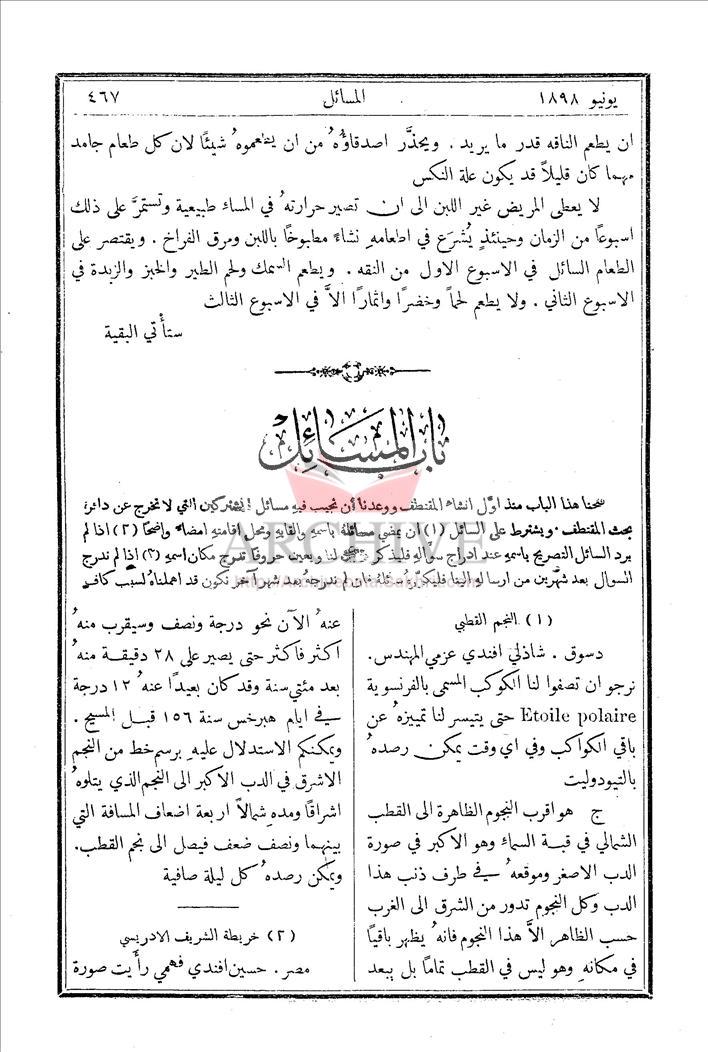 يونيو ١٨٩٨
المسائل
٤٦٧
ان يطعم الناقه قدر ما يريد . ويحذَّر اصدقاؤُهُ من ان يطعموهُ شيئًا لان كل طعام جامد
مهما كان قليلاً قد يكون علة النكس
لا يعطى المريض غير اللبن الى ان تصير حرارتهُ في المساء طبيعية وتستمرَّ على ذلك
اسبوعًا من الزمان وحينئذٍ يُشرَع في اطعامهِ نشاءً مطبوخًا باللبن ومرق الفراخ . ويقتصر على
الطعام السائل في الاسبوع الاول من النقه . ويطعم السمك ولحم الطير والخبز والزبدة في
الاسبوع الثاني . ولا يطعم لحمًا وخضرًا واثمارًا الاَّ في الاسبوع الثالث
ستأْتي البقية
باب المسائل
فتحنا هذا الباب منذ اوَّل انشاء المقتطف ووعدنا أن نجيب فيهِ مسائل المشتركين التي لا تخرج عن دائرة
بحث المقتطف . ويشترط على السائل (١) أن يمضي مسائلهُ باسمهِ والقابهِ ومحل اقامتهِ امضاءً واضحًا (٢) اذا لم
يرد السائل التصريح باسمهِ عند ادراج سوالهِ فليذكر ذلك لنا ويعين حروفًا تدرج مكان اسمهِ (٣) اذا لم ندرج
السوال بعد شهرين من ارسالهِ الينا فليكرِّرهُ سائلهُ فان لم ندرجهُ بعد شهر آخر نكون قد اهملناهُ لسبب كافٍ
ARCHIVE
(١) النجم القطبي
دسوق . شاذلي افندي عزمي المهندس.
نرجو ان تصفوا لنا الكوكب المسمى بالفرنسوية
Etoile polaire حتى يتيسر لنا تمييزهُ عن
باقي الكواكب وفي اي وقت يمكن رصدهُ
بالتيودوليت
ج هو اقرب النجوم الظاهرة الى القطب
الشمالي في قبة السماء وهو الاكبر في صورة
الدب الاصغر وموقعهُ في طرف ذنب هذا
الدب وكل النجوم تدور من الشرق الى الغرب
حسب الظاهر الاَّ هذا النجوم فانهُ يظهر باقيًا
في مكانهِ وهو ليس في القطب تمامًا بل يبعد
عنهُ الآن نحو درجة ونصف وسيقرب منهُ
اكثر فاكثر حتى يصير على ٢٨ دقيقة منهُ
بعد مئتي سنة وقد كان بعيدًا عنهُ ١٢ درجة
في ايام هبرخس سنة ١٥٦ قبل المسيح .
ويمكنكم الاستدلال عليهِ برسم خط من النجم
الاشرق في الدب الاكبر الى النجم الذي يتلوهُ
اشراقًا ومده شمالاً اربعة اضعاف المسافة التي
بينهما ونصف ضعف فيصل الى نجم القطب.
ويمكن رصدهُ كل ليلة صافية
(٢) خريطة الشريف الادريسي
مصر . حسين افندي فهمي رأَيت صورة